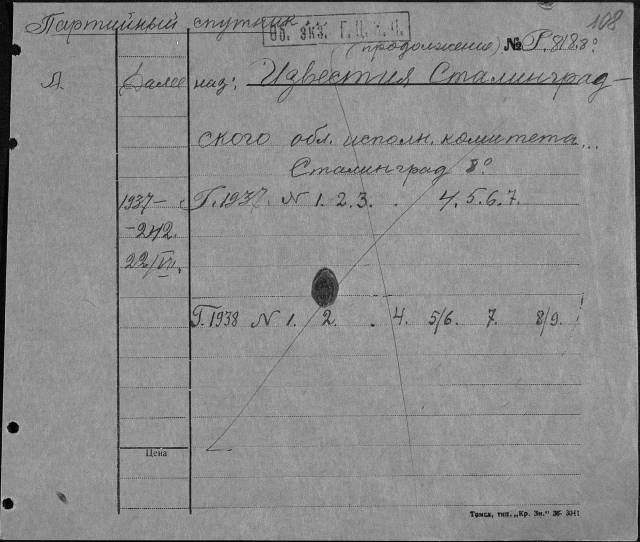 Партийный спутник.
Об. экз. Г. Ц. К. П.
108
(продолжение) № Р. 818. 8°
Л. Далее наз: Известия Сталинград-
ского обл. исполн. комитета...
Сталинград 8°
1937- Г. 1937. N 1. 2. 3. . 4. 5. 6. 7.
-242.
22/VII.
Г. 1938 N 1. 2. . 4. 5/6. 7. 8/9. !
Цена
Томск, тип. „Кр. Зн." 36 3041